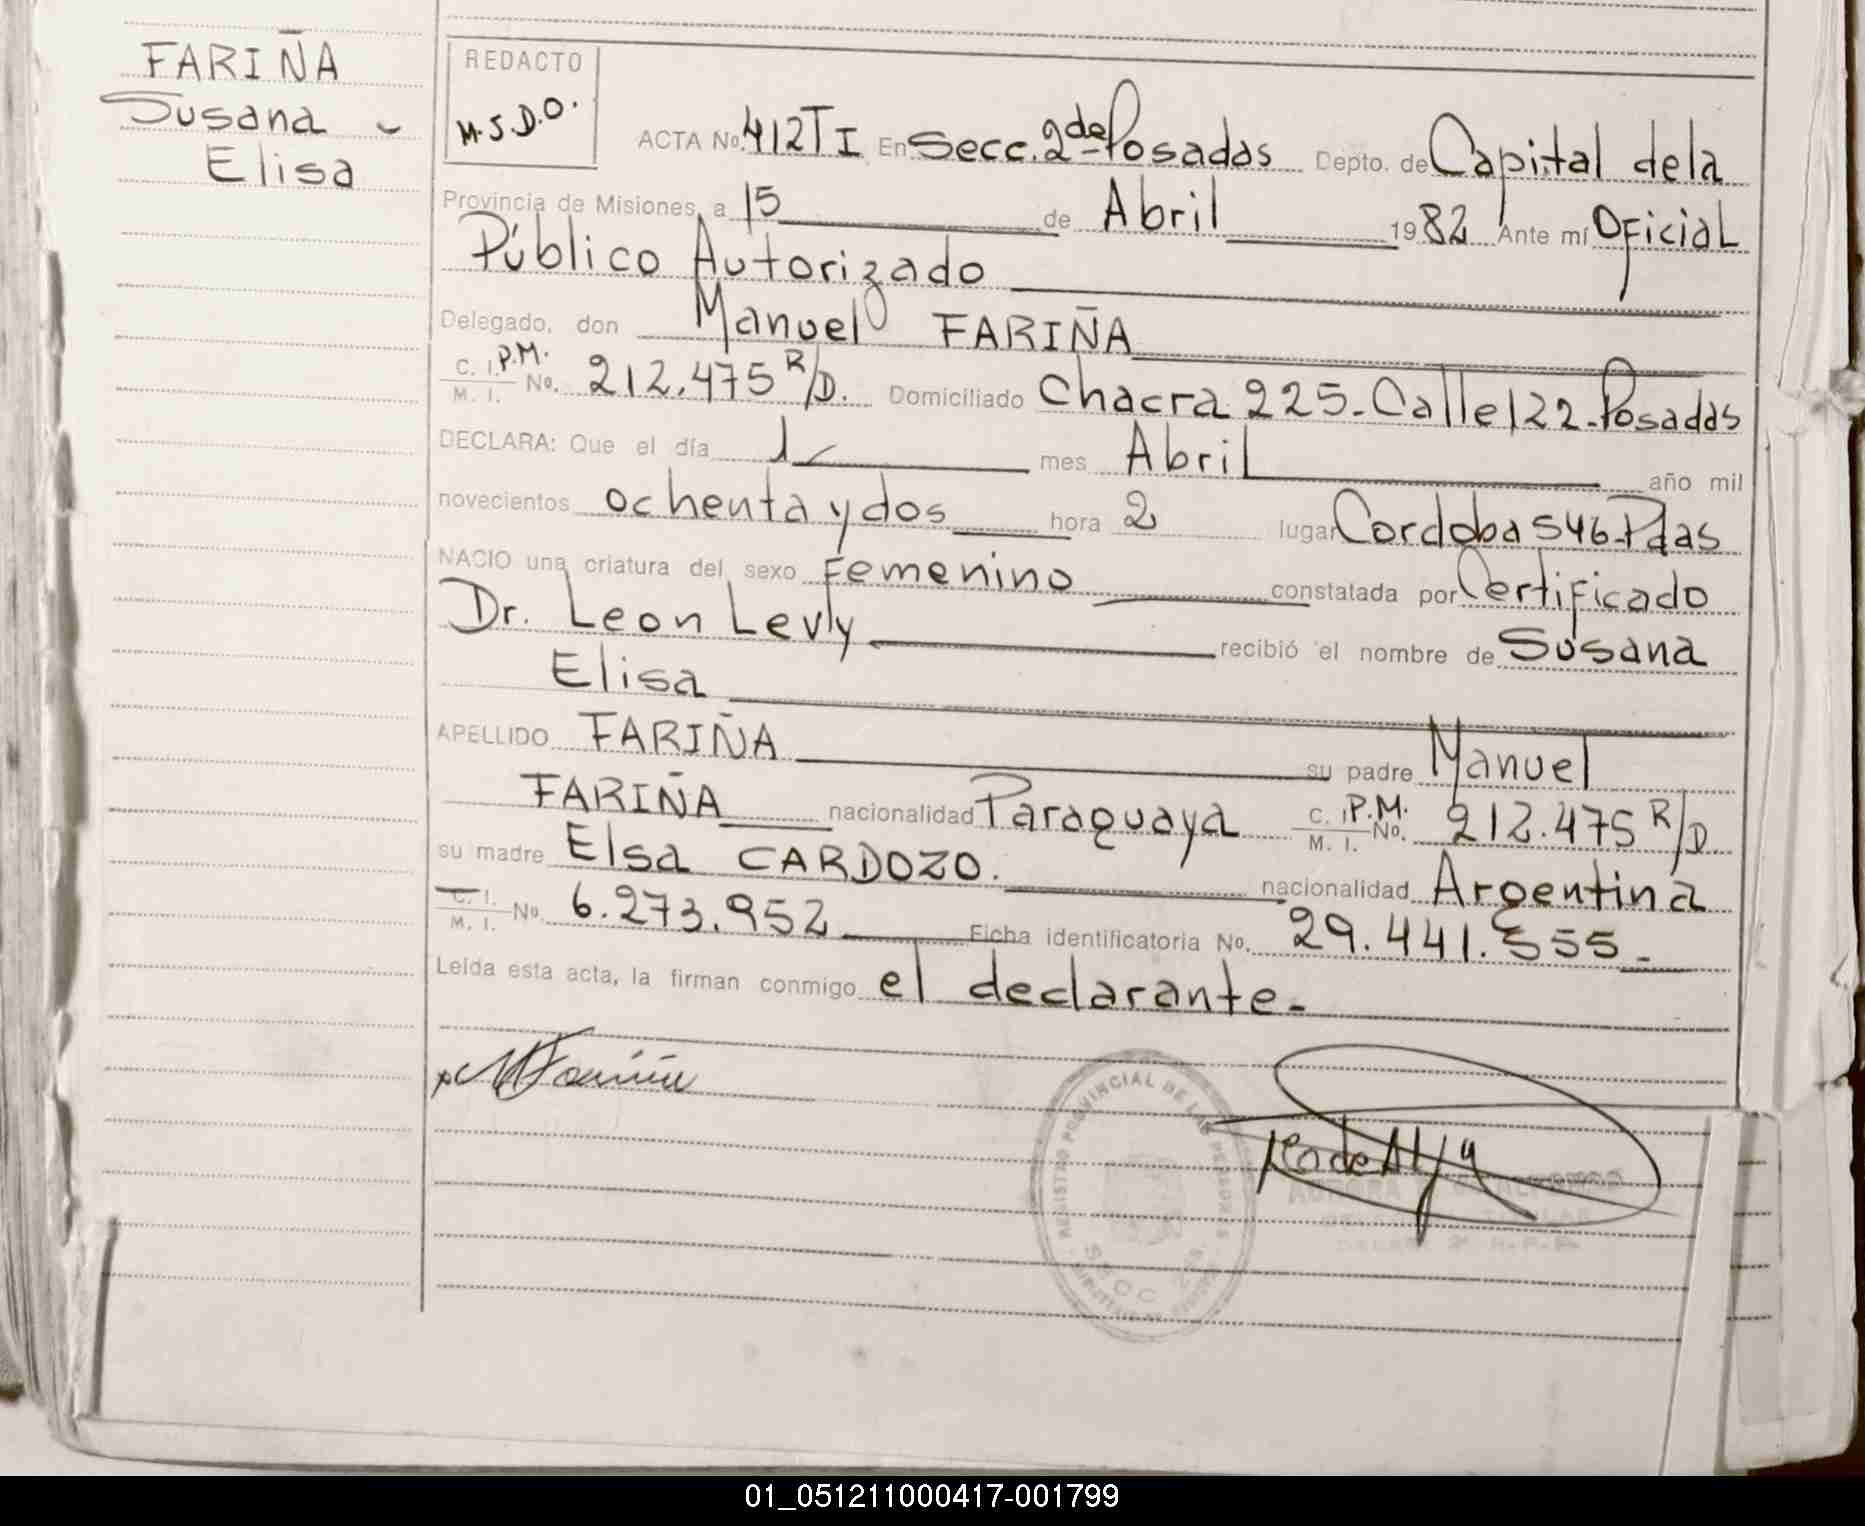 FARIÑA
Susana
Elisa
REDACTO
M.S.D.O.
ACTA No. 412 T I En Secc. 2da Posadas Depto. de Capital dela
Provincia de Misiones, a 15 de Abril 1982 Ante mí Oficial
Público Autorizado
Delegado, don Manuel FARIÑA
C. I. P.M. M. I. No. 212.475 R/D. Domiciliado Chacra 225-Calle 122-Posadas
DECLARA: Que el día 1 mes Abril año mil
novecientos ochenta y dos hora 2 lugar Cordoba 546-Pdas
NACIO una criatura del sexo Femenino constatada por Certificado
Dr. Leon Levly recibió el nombre de Susana
Elisa
APELLIDO FARIÑA su padre Manuel
FARIÑA nacionalidad Paraguaya C. I. P.M. M. I. No. 212.475 R/D
su madre Elsa CARDOZO. nacionalidad Argentina
C. I. M. I. No. 6.273.952 Ficha identificatoria No. 29.441.555.-
Leida esta acta, la firman conmigo el declarante-
REGISTRO PROVINCIAL DE LAS PERSONAS
SECC 2a
01_051211000417-001799